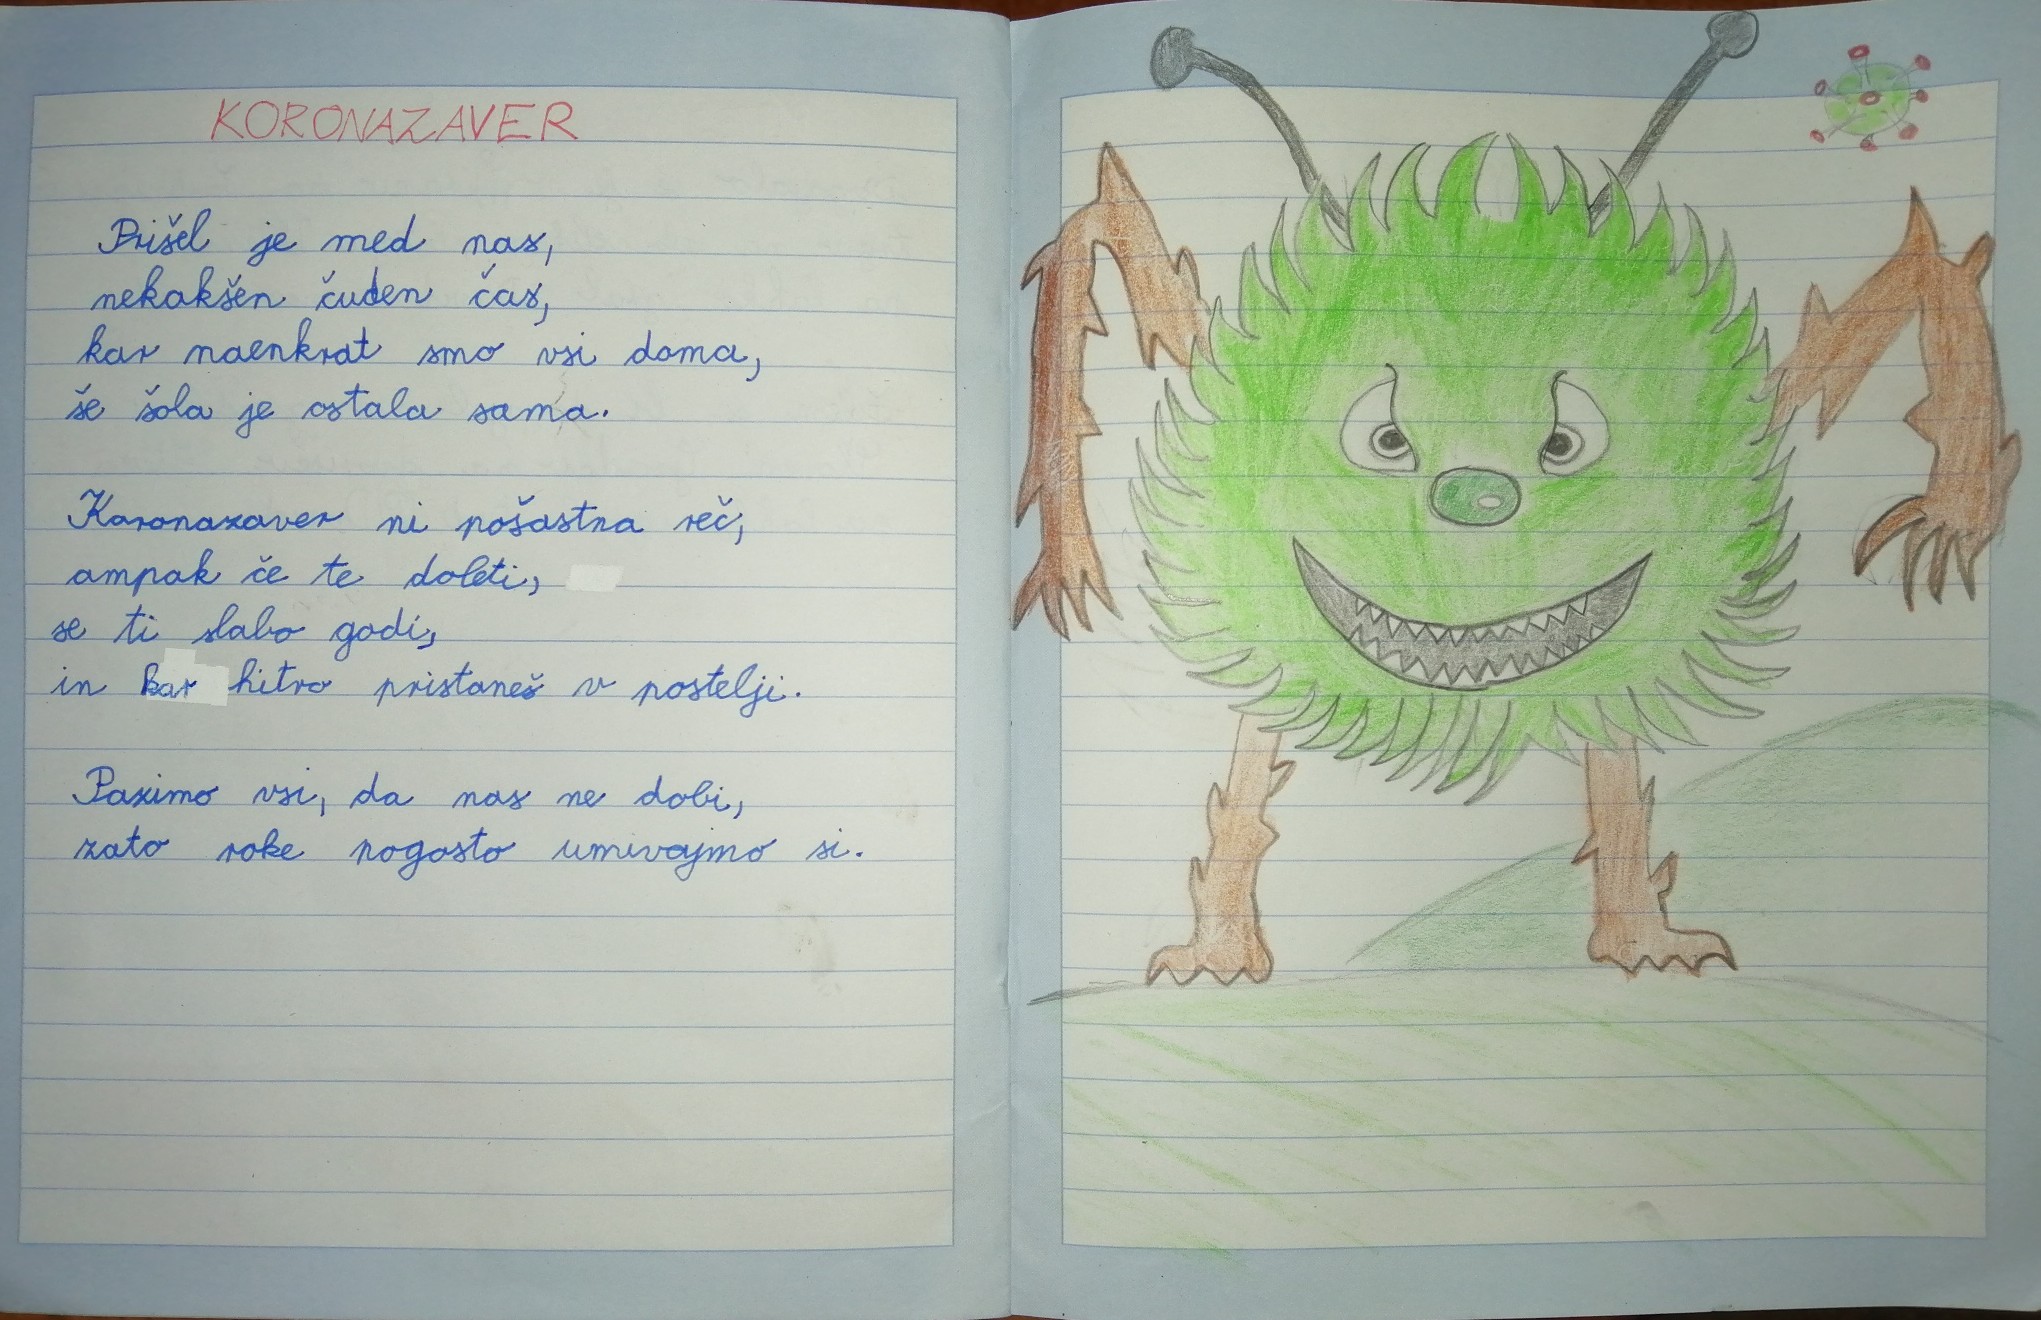 KORONAZAVER
Prišel je med nas,
nekakšen čuden čas,
kar naenkrat smo vsi doma,
še šola je ostala sama.
Koronazaver ni pošastna reč,
ampak če te doleti,
se ti slabo godi,
in kar hitro pristaneš v postelji.
Pazimo vsi, da nas ne dobi,
zato roke pogosto umivajmo si.